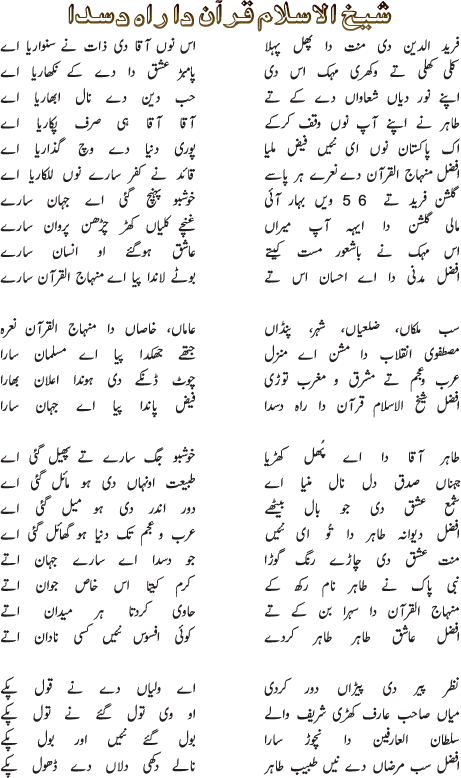 شیخ الاسلام قرآن دا راہ دسدا
فرید الدین دی منت دا پھل پہلا اس نوں آقا دی ذات نے سنواریا اے
کلی کھلی تے وکھری مہک اس دی پامبڑ عشق دا دے کے نکھاریا اے
اپنے نور دیاں شعاواں دے کے تے حب دین دے نال ابھاریا اے
طاہر نے اپنے آپ نوں وقف کرکے آقا آقا ہی صرف پکاریا اے
اک پاکستان نوں ای نئیں فیض ملیا پوری دنیا دے وچ گذاریا اے
افضل منہاج القرآن دے نعرے ہر پاسے قائد نے کفر سارے نوں للکاریا اے
گلشن فرید تے 56 ویں بہار آئی خوشبو پہنچ گئی اے جہان سارے
مالی گلشن دا ایہہ آپ میراں غنچے کلیاں کھڑ چڑھن پروان سارے
اس مہک نے باشعور مست کیتے عاشق ہوگئے او انسان سارے
افضل مدنی دا اے احسان اس تے بوٹے لاندا پیا اے منہاج القرآن سارے
سب ملکاں، ضلعیاں، شہر، پنڈاں عاماں، خاصاں دا منہاج القرآن نعرہ
مصطفوی انقلاب دا مشن اے منزل جتھے جھکدا پیا اے مسلمان سارا
عرب وعجم تے مشرق و مغرب توڑی چوٹ ڈنکے دی ہوندا اعلان بھارا
افضل شیخ الاسلام قرآن دا راہ دسدا فیض پاندا پیا اے جہان سارا
طاہر آقا دا اے پُھل کھڑیا خوشبو جگ سارے تے پھیل گئی اے
جہناں صدق دل نال منیا اے طبیعت اونہاں دی ہو مائل گئی اے
شمع عشق دی جو بال بیٹھے دور اندر دی ہو میل گئی اے
افضل دیوانہ طاہر دا تُو ای نئیں عرب و عجم تک دنیا ہو گھائل گئی اے
منت عشق دی چاڑے رنگ گوڑا جو دسدا اے سارے جہان اتے
نبی پاک نے طاہر نام رکھ کے کرم کیتا اس خاص جوان اتے
منہاج القرآن دا سہرا بن کے تے حاوی کردتا ہر میدان اتے
افضل عاشق طاہر طاہر کردے کوئی افسوس نئیں کسی نادان اتے
نظر پیر دی پیڑاں دور کردی اے ولیاں دے نے قول پکے
میاں صاحب عارف کھڑی شریف والے او وی تول گئے نے تول پکے
سلطان العارفین دا نچوڑ سارا بول گئے نئیں اور بول پکے
افضل سب مرضاں دے نیں طبیب طاہر نالے دکھی دلاں دے ڈھول پکے